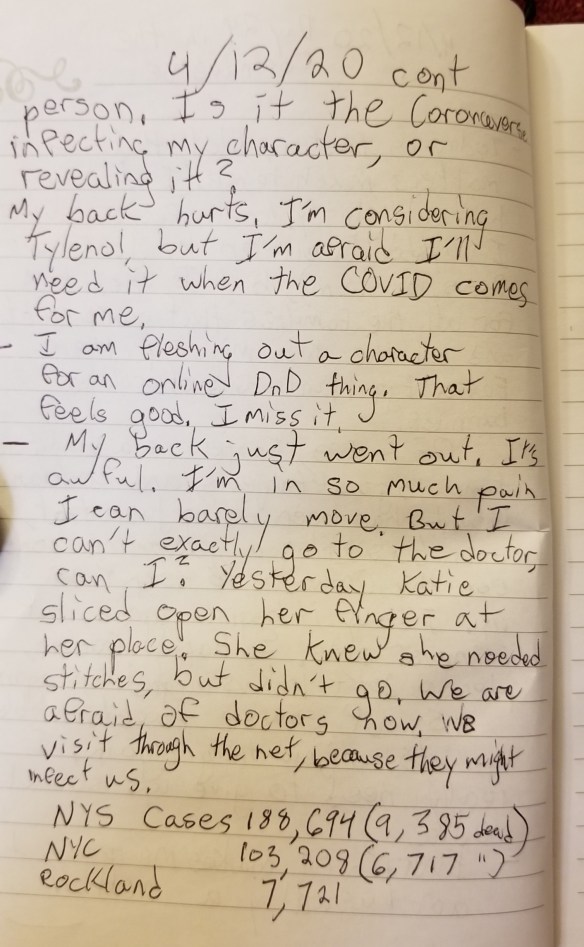 4/12/20 cont
person. Is it the Coronaverse
infecting my character, or
revealing it?
My back hurts. I'm considering
Tylenol, but I'm afraid I'll
need it when the COVID comes
for me.
- I am fleshing out a character
for an online DnD thing. That
feels good. I miss it.
- My back just went out. It's
awful. I'm in so much pain
I can barely move. But I
can't exactly go to the doctor,
can I? Yesterday Katie
sliced open her finger at
her place. She knew she needed
stitches, but didn't go. We are
afraid of doctors now. We
visit through the net, because they might
infect us.
NYS Cases 188,694 (9,385 dead)
NYC 103,208 (6,717 ")
Rockland 7,721